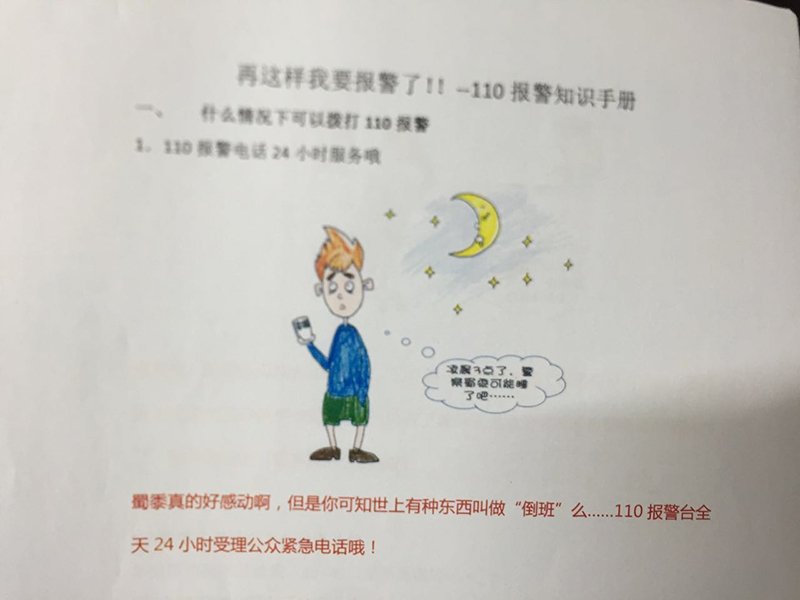 再这样我要报警了!! –110 报警知识手册
一、 什么情况下可以拨打 110 报警
1. 110 报警电话 24 小时服务哦
凌晨3点了，警
察都很可能睡
了吧……
蜀黍真的好感动啊，但是你可知世上有种东西叫做“倒班”么……110 报警台全
天 24 小时受理公众紧急电话哦！